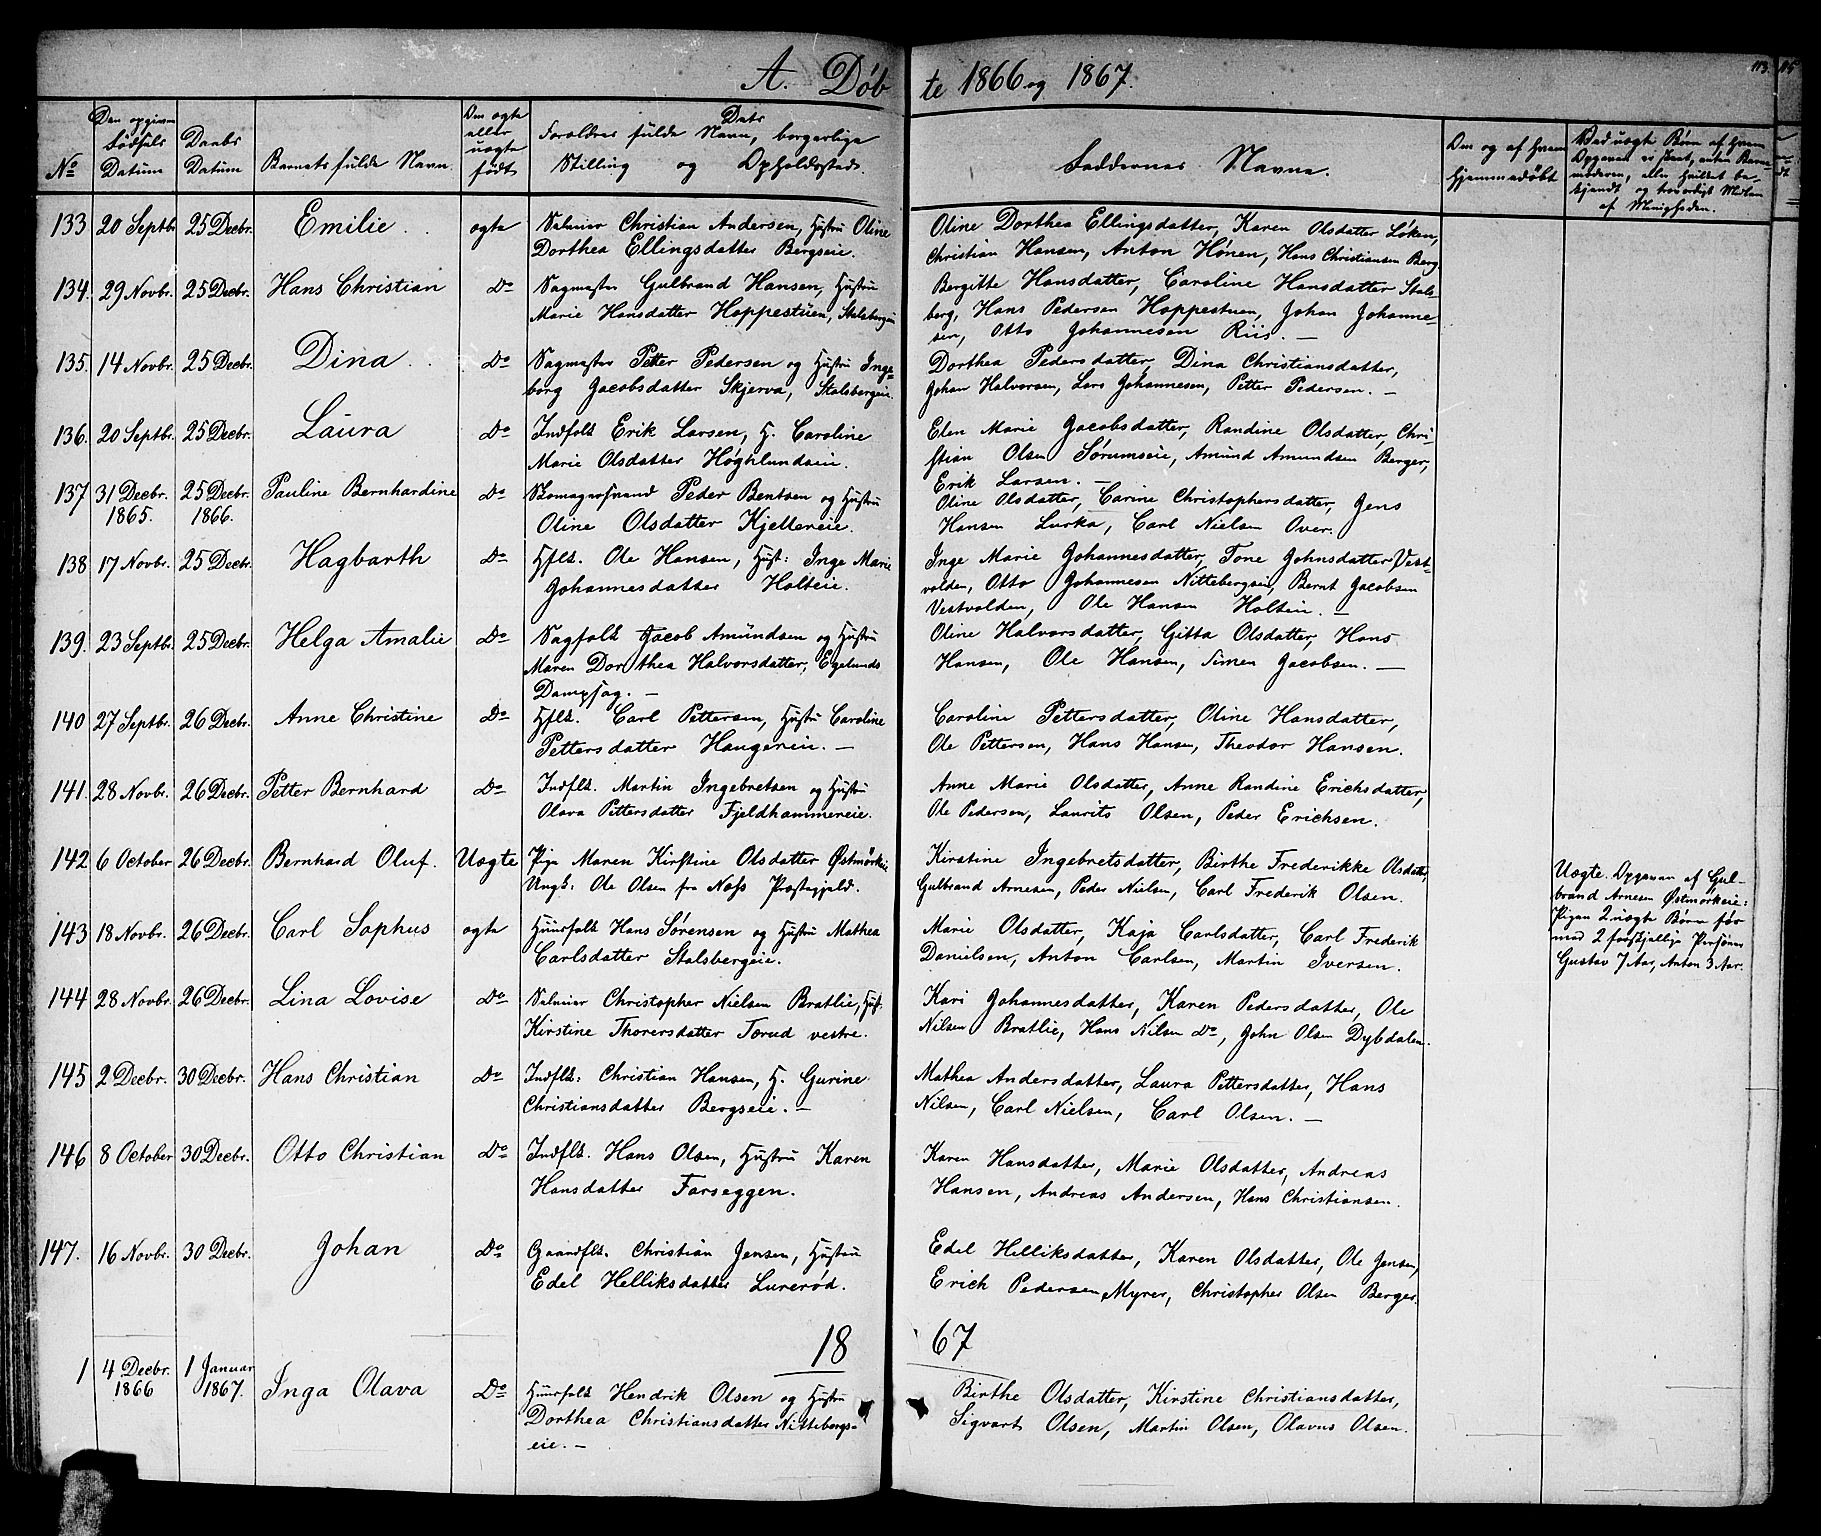 A. Døb
te 1866 og 1867.
113.
No
Den opgivne Fødsels Datum
Daabs Datum
Barnets fulde Navn.
Om ægte eller uægte født
Forældres fulde Navn, Dets borgerlige Stilling og Opholdssted.
Faddernes Navne.
Om og af hvem hjemmedøbt
133 20 Septbr. 25 Decbr. Emilie. ægte Selveier Christian Andersen, Hustru Oline
Dorthea Ellingsdatter Bergseie.
Oline Dorthea Ellingsdatter, Karen Olsdatter Løken,
Christian Hansen, Anton Hønen, Hans Christiansen Berg.
134. 29 Novbr. 25 Decbr. Hans Christian Do Sagmester Gulbrand Hansen, Hustru
Marie Hansdatter Hoppestuen, Stalsbergeie
Bergitte Hansdatter, Caroline Hansdatter Stals-
berg, Hans Pedersen Hoppestuen, Johan Johanne-
sen, Otto Johannesen Riis. —
135. 14 Novbr. 25 Decbr. Dina Do Sagmester Petter Pedersen og Hustru Inge-
borg Jacobsdatter Skjerva, Stalsbergeie.
Dorthea Pedersdatter, Dina Christiansdatter,
Johan Halvorsen, Lars Johannesen, Petter Pedersen. —
136. 20 Septbr. 25 Decbr. Laura Do Indfolk Erik Larsen, H. Caroline
Marie Olsdatter Høghlundeie.
Elen Marie Jacobsdatter, Randine Olsdatter, Chri-
stian Olsen Sørumseie, Amund Amundsen Berger,
Erik Larsen. —
137 31 Decbr. 1865. 25 Decbr. 1866. Pauline Bernhardine Do Skomagersvend Peder Bentsen og Hustru
Oline Olsdatter Kjellereie.
Oline Olsdatter, Carine Christophersdatter, Jens
Hansen Lurka, Carl Nielsen Over.
138 17 Novbr. 25 Decbr. Hagbarth Do Hflk. Ole Hansen, Hust: Inge Marie
Johannesdatter Holteie.
Inge Marie Johannesdatter, Tone Johnsdatter Vest-
volden, Otto Johannesen Nittebergseie, Bernt Jacobsen
Vestvolden, Ole Hansen Holteie. —
139. 23 Septbr. 25 Decbr. Helga Amalie Do Sagfolk Jacob Amundsen og Hustru
Maren Dorthea Halvorsdatter, Egelunds
Dampsag. —
Oline Halvorsdatter, Gitta Olsdatter, Hans
Hansen, Ole Hansen, Simen Jacobsen. —
140 27 Septbr. 26 Decbr. Anne Christine Do Hflk. Carl Pettersen, Hustru Caroline
Pettersdatter Haugereie. —
Caroline Pettersdatter, Oline Hansdatter,
Ole Pettersen, Hans Hansen, Theodor Hansen.
141. 28 Novbr. 26 Decbr. Petter Bernhard Do Indflk. Martin Ingebretsen og Hustru
Olava Pettersdatter Fjeldhammereie.
Anne Marie Olsdatter, Anne Randine Erichsdatter,
Ole Pedersen, Laurits Olsen, Peder Erichsen.
142 6 October 26 Decbr. Bernhard Oluf. Uægte Pige Maren Kirstine Olsdatter Østmørkeie
Ungk: Ole Olsen fra Næs Præstegjeld.
Kirstine Ingebretsdatter, Birthe Frederikke Olsdatter,
Gulbrand Arnesen, Peder Nielsen, Carl Frederik Olsen.
Uægte. Opgaven af Gul-
brand Arnesen Østmørkeie:
Pigen 2 uægte Børn før
med 2 forskjellige Personer
Gustav 7 Aar, Anton 3 Aar.
143 18 Novbr. 26 Decbr. Carl Sophus ægte Huusfolk Hans Sørensen og Hustru Mathea
Carlsdatter Stalsbergeie.
Marie Olsdatter, Kaja Carlsdatter, Carl Frederik
Danielsen, Anton Carlsen, Martin Iversen.
144 28 Novbr. 26 Decbr. Lina Lovise Do Selveier Christopher Nielsen Bratlie, Hust.
Kirstine Thorersdatter Torud vestre.
Kari Johannesdatter, Karen Pedersdatter, Ole
Nilsen Bratlie, Hans Nilsen Do, John Olsen Dybdalen.
145 2 Decbr. 30 Decbr. Hans Christian Do Indflk: Christian Hansen, H. Gurine
Christiansdatter Bergseie. —
Mathea Andersdatter, Laura Pettersdatter, Hans
Nilsen, Carl Nielsen, Carl Olsen. —
146 8 October 30 Decbr. Otto Christian Do Indflk. Hans Olsen, Hustru Karen
Hansdatter Farseggen.
Karen Hansdatter, Marie Olsdatter, Andreas
Hansen, Andreas Andersen, Hans Christiansen.
147. 16 Novbr. 30 Decbr. Johan Do Gaardflk. Christian Jensen, Hustru
Edel Helliksdatter Lurerød.
Edel Helliksdatter, Karen Olsdatter, Ole Jensen,
Erick Pedersen Myrer, Christopher Olsen Berger.
18 67
1 4 Decbr. 1866 1 Januar 1867. Inga Olava Do Huusfolk Hendrik Olsen og Hustru
Dorthea Christiansdatter Nittebergs-
eie. —
Birthe Olsdatter, Kirstine Christiansdatter,
Sigvart Olsen, Martin Olsen, Olavus Olsen.